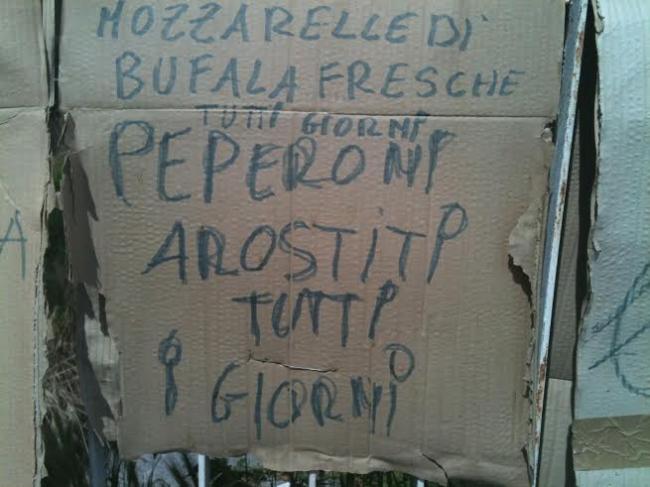 MOZZARELLE Di
BUFALA FRESCHE
TUTTi GIORNi
PEPERONi
AROSTiTi
TUTTi
i GIORNi
A